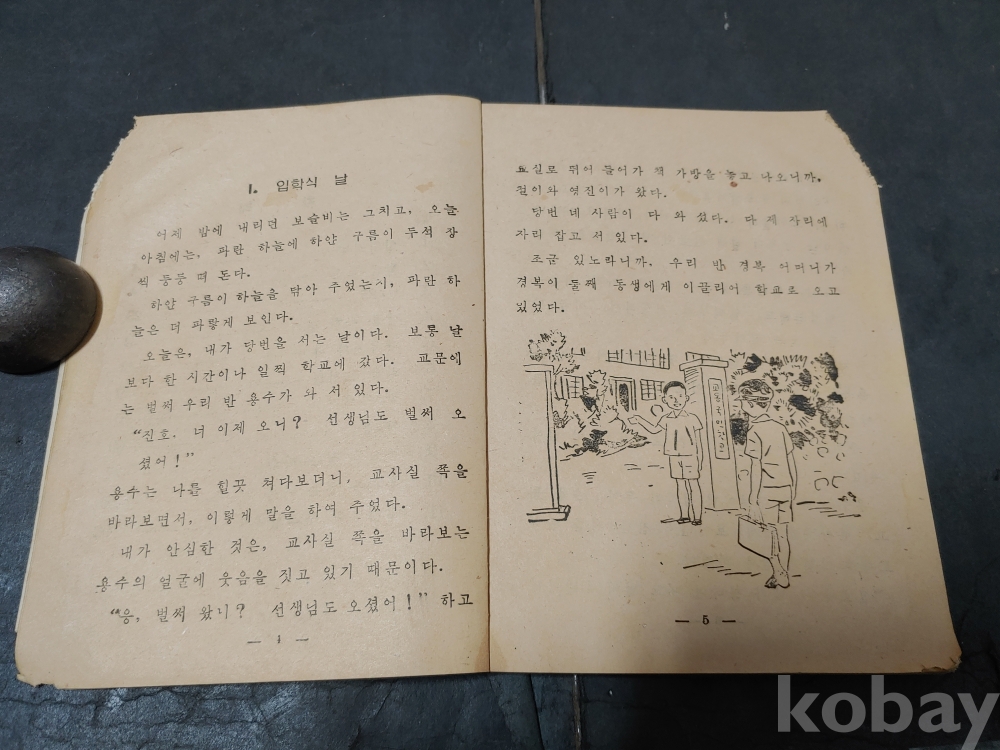 1. 입학식 날
어제 밤에 내리던 보슬비는 그치고, 오늘
아침에는, 파란 하늘에 하얀 구름이 두석 장
씩 둥둥 떠 돈다.
하얀 구름이 하늘을 닦아 주었는지, 파란 하
늘은 더 파랗게 보인다.
오늘은, 내가 당번을 서는 날이다. 보통 날
보다 한 시간이나 일찍 학교에 갔다. 교문에
는 벌써 우리 반 용수가 와 서 있다.
“진호. 너 이제 오니? 선생님도 벌써 오
셨어!”
용수는 나를 힐끗 쳐다보더니, 교사실 쪽을
바라보면서, 이렇게 말을 하여 주었다.
내가 안심한 것은, 교사실 쪽을 바라보는
용수의 얼굴에 웃음을 짓고 있기 때문이다.
“응, 벌써 왔니? 선생님도 오셨어!” 하고
— 4 —
교실로 뛰어 들어가 책 가방을 놓고 나오니까,
철이와 영진이가 왔다.
당번 네 사람이 다 와 섰다. 다 제 자리에
자리 잡고 서 있다.
조금 있노라니까. 우리 반 경복 어머니가
경복이 둘째 동생에게 이끌리어 학교로 오고
있었다.
— 5 —
kobay